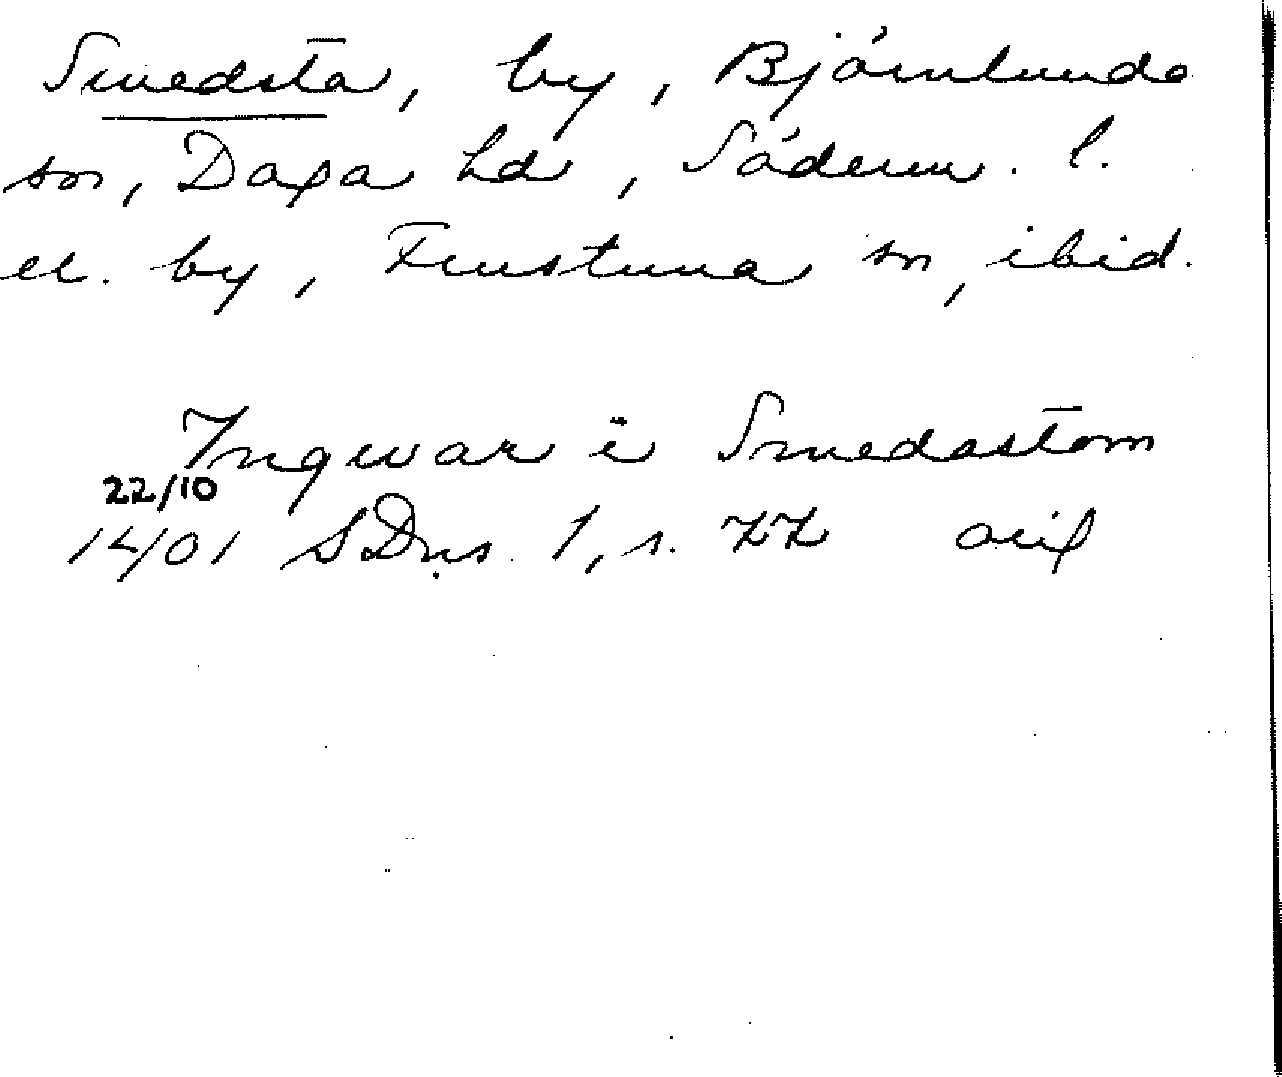 Smedsta, by, Björnlunda
sn, Daga hd, Söderm. l.
el. by, Frustuna sn, ibid.
Ingwar i Smedastom
22/10
1401 SDns 1, s. 77 orig